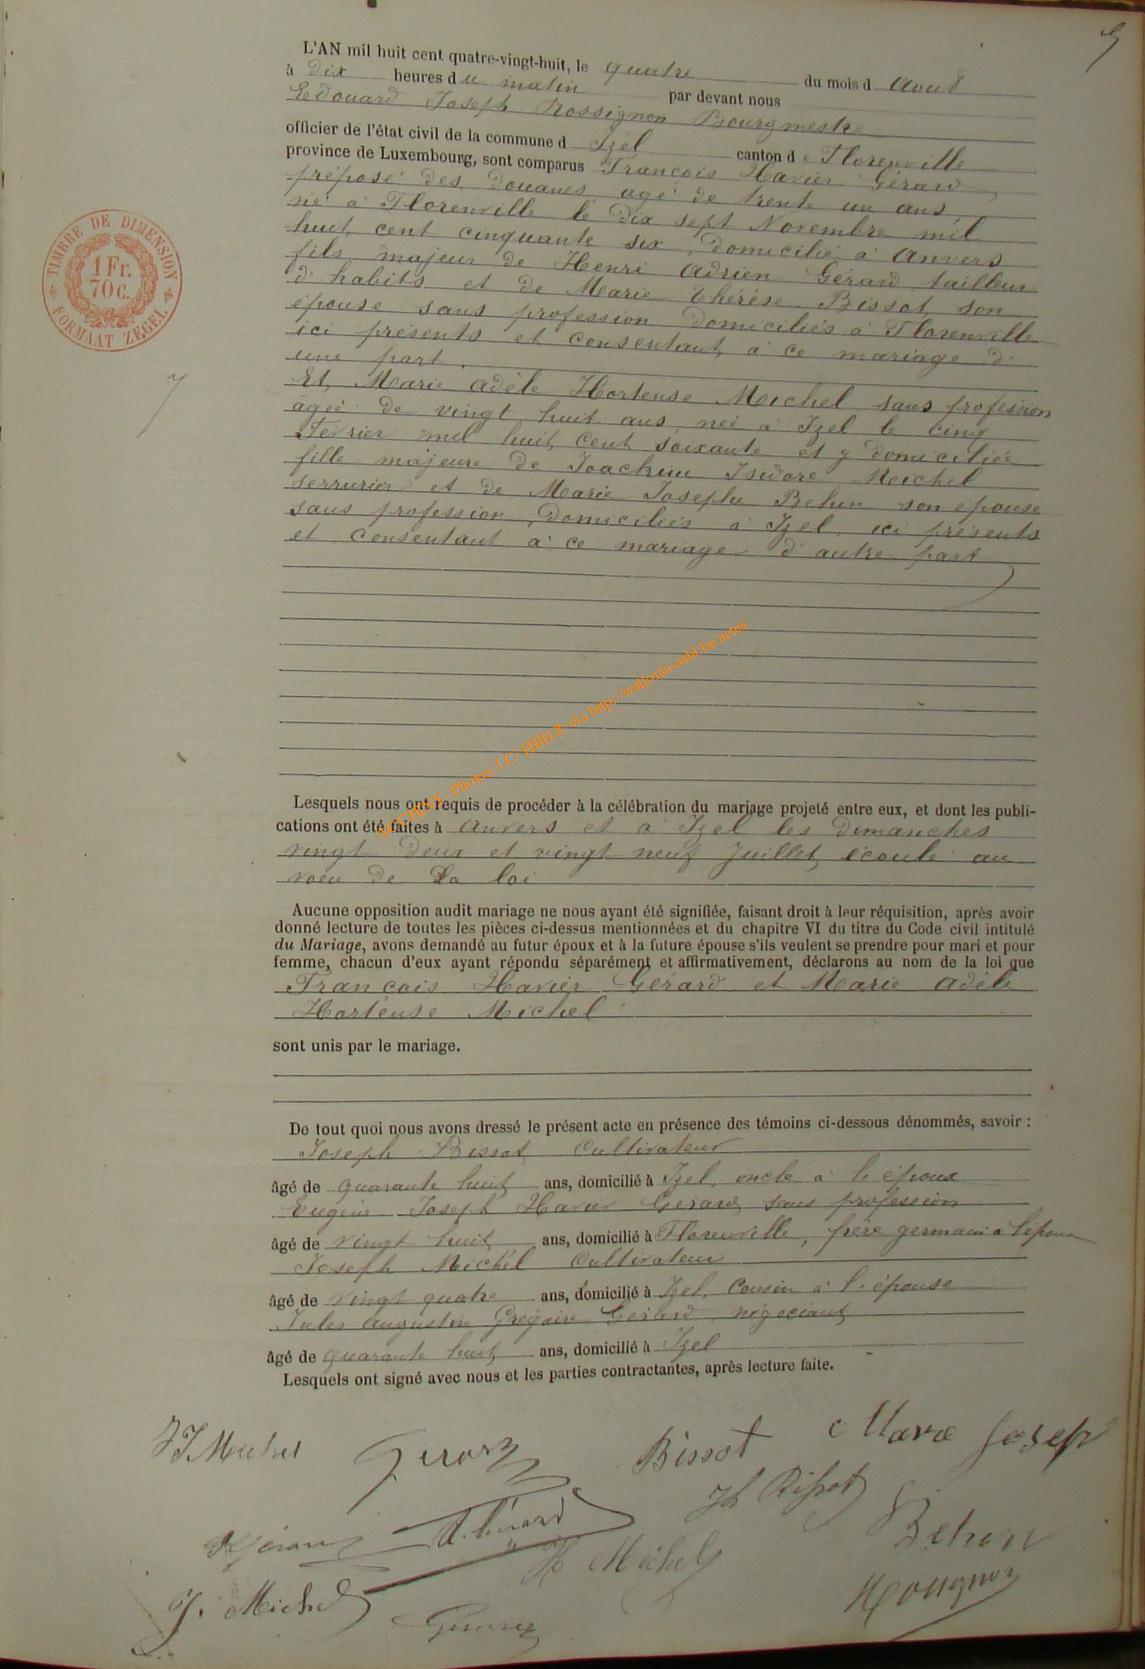 L'AN mil huit cent quatre-vingt-huit, le quatre du mois d Aout
à Dix heures du matin par devant nous
Edouard Joseph Rossignon Bourgmestre
officier de l'état civil de la commune d Izel canton de Florenville
province de Luxembourg, sont comparus François Xavier Gérard
préposé des Douanes, agé de trente un ans,
né à Florenville le dix sept Novembre mil
huit cent cinquante six, domicilié à Anvers
fils majeur de Henri Adrien Gérard, tailleur
d'habits et de Marie Thérèse Bissot, son
épouse sans profession Domiciliés à Florenville
ici présents et consentant à ce mariage d'
une part.
Et Marie Adèle Hortense Michel sans profession
agée de vingt huit ans, née à Izel le cinq
Février mil huit cent soixante et y domiciliée
fille majeure de Joachim Isidore Michel
serrurier et de Marie Josephe Behin son épouse
sans profession, Domiciliés à Izel, ici présents
et consentant à ce mariage d'autre part
TIMBRE DE DIMENSION
1 Fr.
70 c.
FORMAAT ZEGEL
7
Photos J.C. via http://wallonia-asbl.be/actes
Lesquels nous ont requis de procéder à la célébration du mariage projeté entre eux, et dont les publi-
cations ont été faites à Anvers et à Izel les Dimanches
vingt Deux et vingt neuf Juillet, écoulé au
voeu de La loi
Aucune opposition audit mariage ne nous ayant été signifiée, faisant droit à leur réquisition, après avoir
donné lecture de toutes les pièces ci-dessus mentionnées et du chapitre VI du titre du Code civil intitulé
du Mariage, avons demandé au futur époux et à la future épouse s'ils veulent se prendre pour mari et pour
femme, chacun d'eux ayant répondu séparément et affirmativement, déclarons au nom de la loi que
François Xavier Gérard et Marie Adèle
Hortense Michel
sont unis par le mariage.
De tout quoi nous avons dressé le présent acte en présence des témoins ci-dessous dénommés, savoir :
Joseph Bissot, Cultivateur
âgé de quarante huit ans, domicilié à Izel, oncle à l'époux
Eugène Joseph Xavier Gérard, sans profession
âgé de vingt huit ans, domicilié à Florenville, frère germain à l'époux
Joseph Michel Cultivateur
âgé de vingt quatre ans, domicilié à Izel, Cousin à l'épouse
Jules Augustin Grégoire Gérard, négociant
âgé de quarante huit ans, domicilié à Izel
Lesquels ont signé avec nous et les parties contractantes, après lecture faite.
J J Michel Gerard Bissot Marie Josep
Jh Bissot Behin
Gérard A. Gérard H Michel
J. Michel Gerard Rossignon